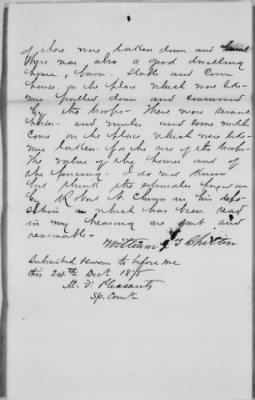 of these were taken down and burnt
There was also a good dwelling
house, barn, Stable and Corn
house on the place which were like-
wise pulled down and consumed
by the troops - There were several
horses - and mules and some milk
cows on the place which were like-
wise taken for the use of the troops -
The value of the houses and of
the fencing - I do not know
but think the estimates
by Robert A. in his depo-
sition - which has been read
in my hearing are just and
reasonable -
William T Chilton
Subscribed & sworn to before me
this 20th Dect 1875
M. F. Pleasants
Sp. Comr